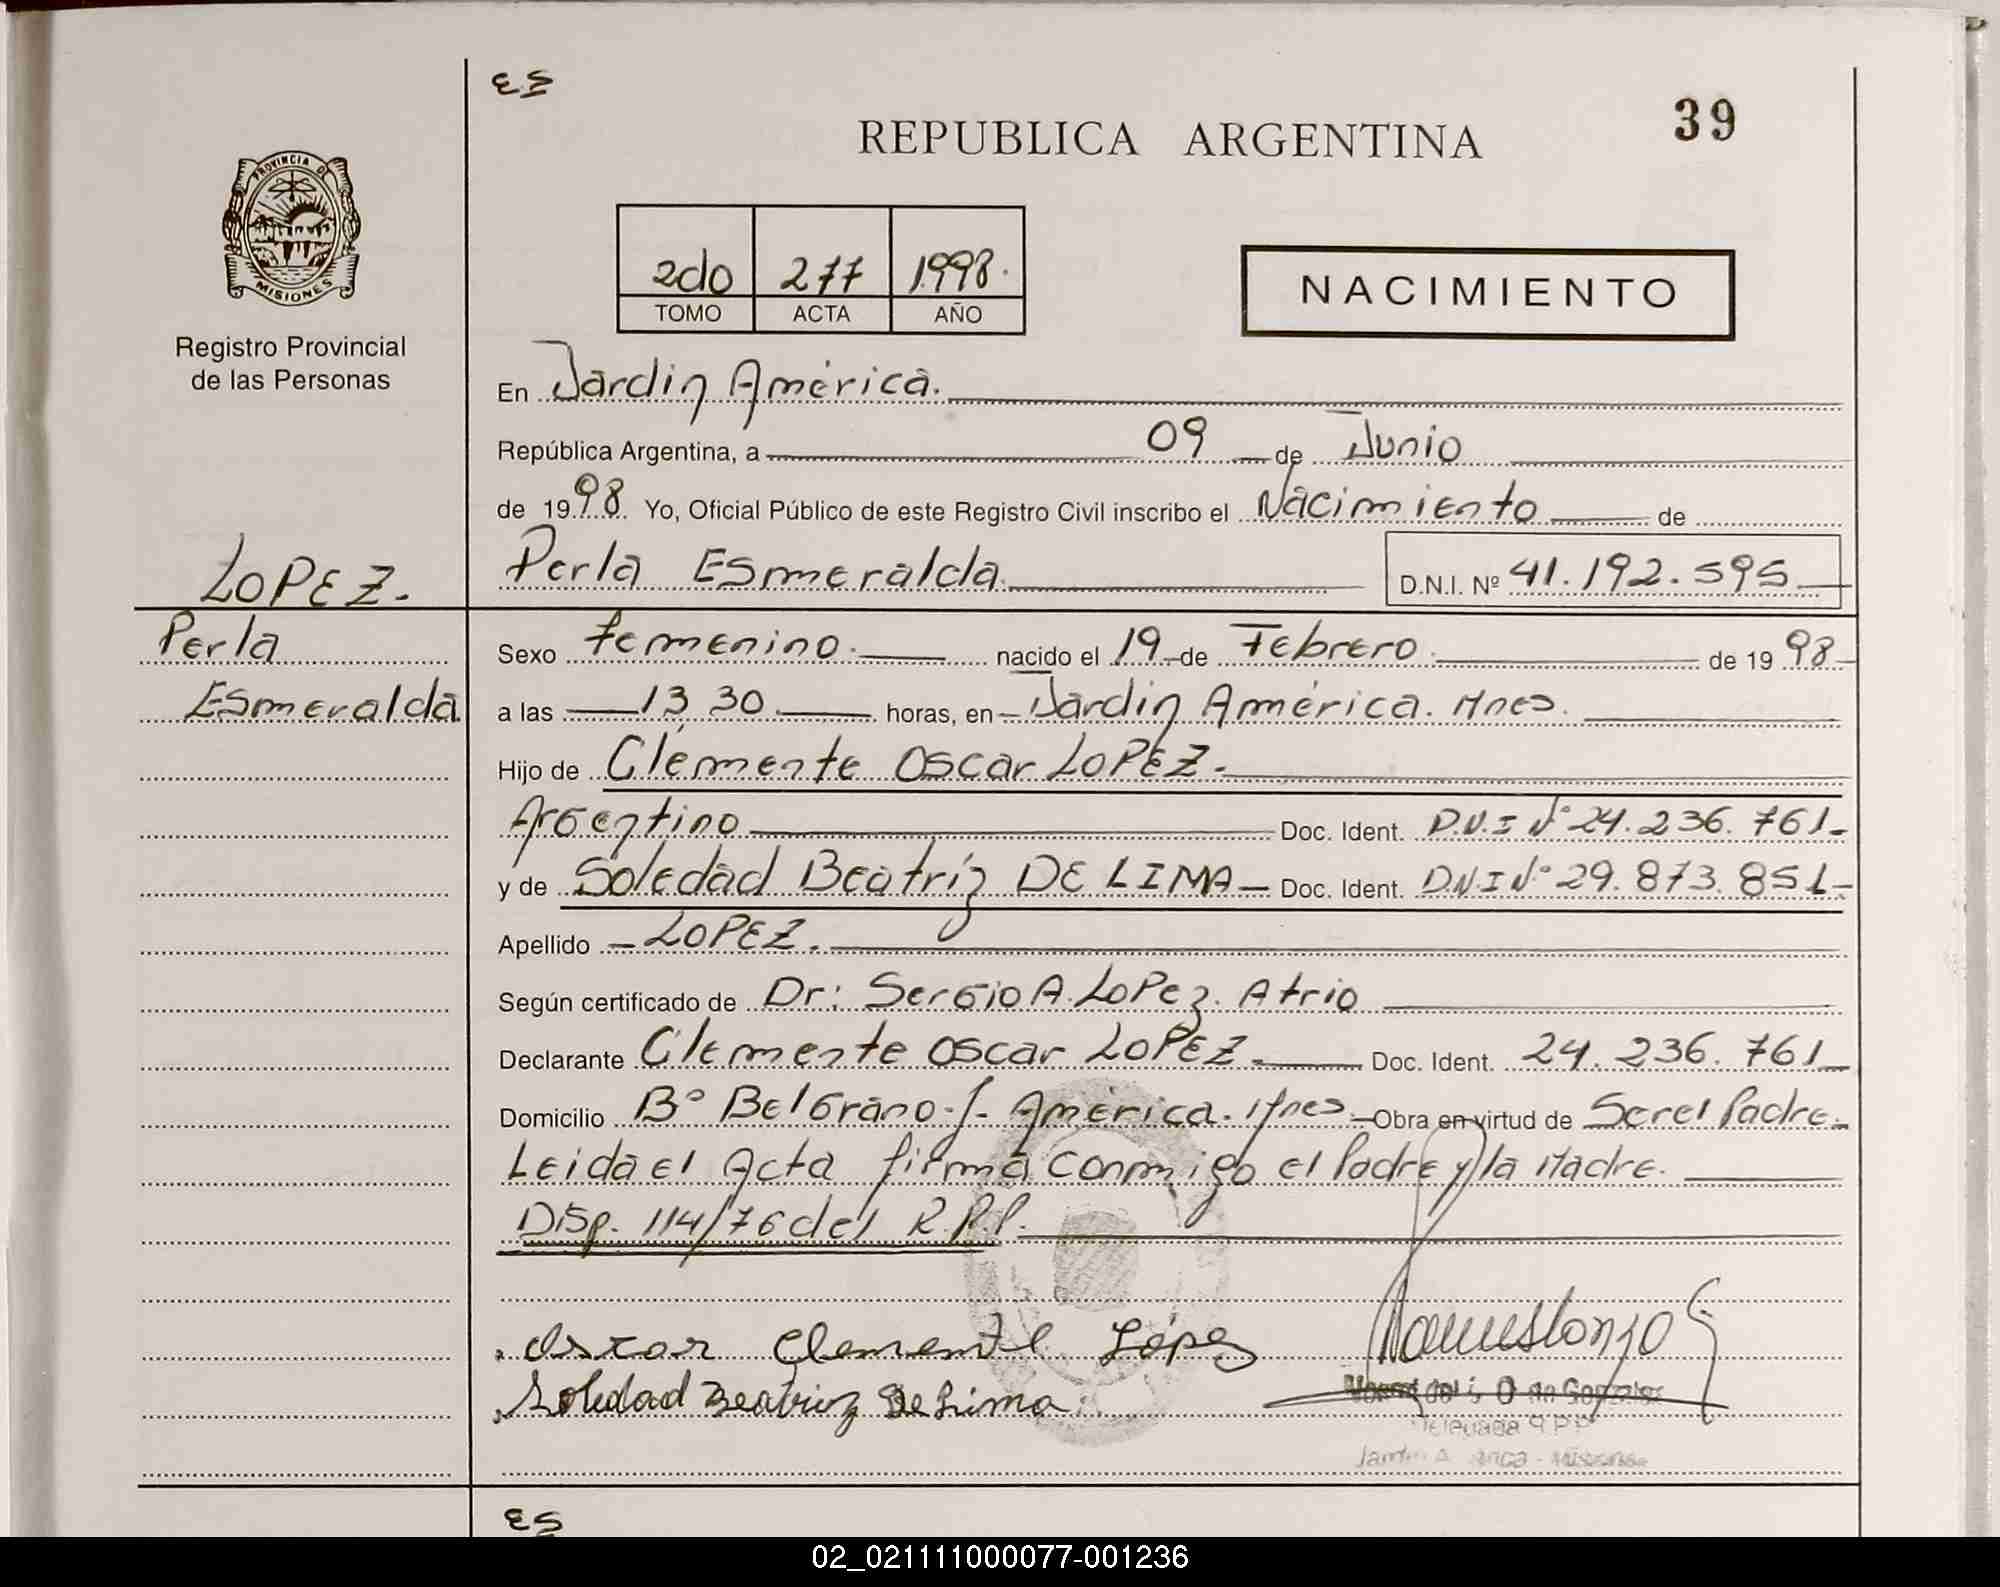 ES
39
REPUBLICA ARGENTINA
PROVINCIA DE
MISIONES
Registro Provincial
de las Personas
2do 277 1.998.
TOMO ACTA AÑO
NACIMIENTO
En Jardin América.
República Argentina, a 09 de Junio
de 1998. Yo, Oficial Público de este Registro Civil inscribo el Nacimiento de
LOPEZ.
Perla Esmeralda D.N.I. Nº 41.192.595
Perla
Esmeralda
Sexo femenino. nacido el 19 de Febrero de 1998
a las 13,30 horas, en Jardin América. Mnes.
Hijo de Clemente Oscar LOPEZ.
Argentino Doc. Ident. D.N.I Nº 24.236.761
y de Soledad Beatríz DE LIMA Doc. Ident. D.N.I Nº 29.873.851
Apellido LOPEZ.
Según certificado de Dr: Sergio A. Lopez. Atrio
Declarante Clemente Oscar LOPEZ. Doc. Ident. 24.236.761
Domicilio Bº Belgrano. J. América. Mnes. Obra en virtud de Ser el Padre.
Leida el Acta firma conmigo el Padre y la Madre.
Disp. 114/76 del R.P.P.
Oscar Clemente López
Soledad Beatriz De Lima
de Gonzalez
R P P
ES
02_021111000077-001236